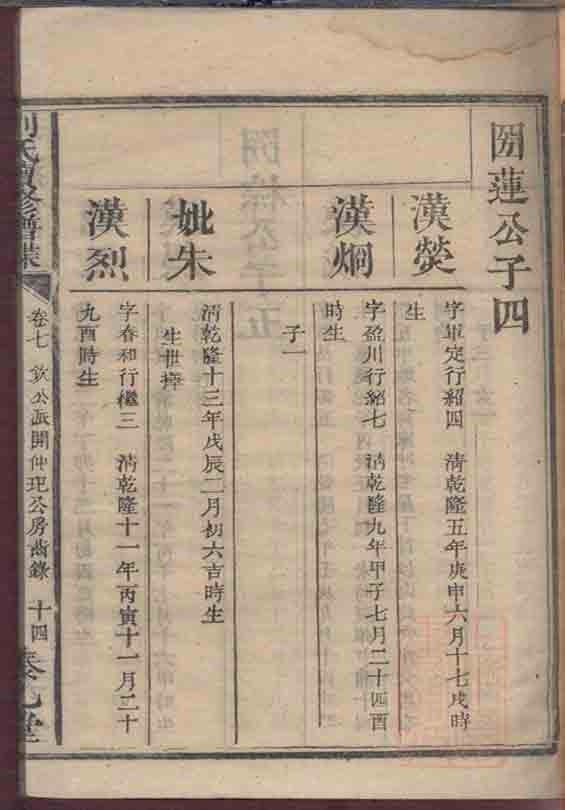 圀蓮公子四
漢熒
字軍定行紹四 清乾隆五年庚申六月十七戌時
生
漢炯
字盈川行紹七 清乾隆九年甲子七月二十四酉
時生
子一
妣朱
清乾隆十三年戊辰二月初六吉時生
生世
漢烈
字春和行繼三 清乾隆十一年丙寅十一月二十
九酉時生
劉氏 修譜牒
卷七 欽公派開仲玘公房齒錄 十四
堂